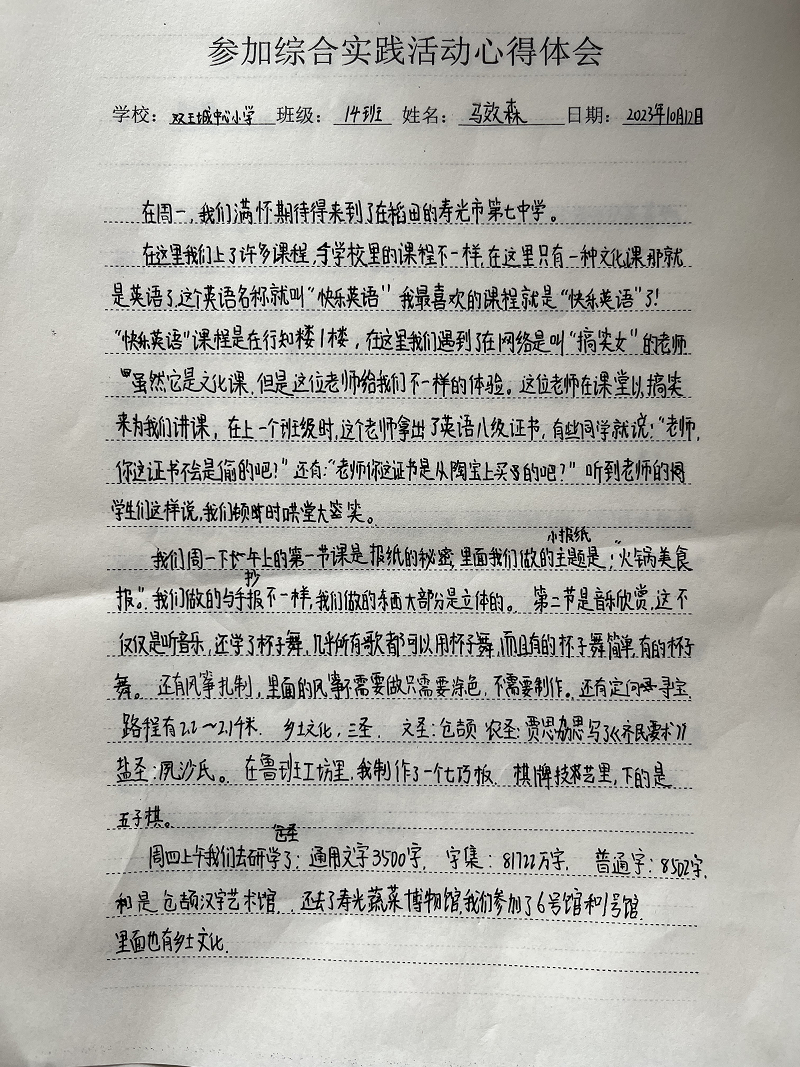 参加综合实践活动心得体会
学校：双王城中心小学 班级：14班 姓名：马效森 日期：2023年10月12日
在周一，我们满怀期待得来到了在稻田的寿光市第七中学。
在这里我们上了许多课程，与学校里的课程不一样，在这里只有一种文化课那就
是英语了，这个英语名称就叫“快乐英语”我最喜欢的课程就是“快乐英语”了！
“快乐英语”课程是在行知楼1楼，在这里我们遇到了在网络是叫“搞笑女”的老师
虽然它是文化课，但是这位老师给我们不一样的体验。这位老师在课堂以搞笑
来为我们讲课，在上一个班级时，这个老师拿出了英语八级证书，有些同学就说：“老师，
你这证书不会是偷的吧？”还有：“老师你这证书是从陶宝上买的吧？”听到老师的
学生们这样说，我们顿时哄堂大笑。
小报纸
我们周一下午上的第一节课是报纸的秘密，里面我们做的主题是：“火锅美食
抄
报”。我们做的与手报不一样，我们做的东西大部分是立体的。 第二节是音乐欣赏，这不
仅仅是听音乐，还学了杯子舞，几乎所有歌都可以用杯子舞，而且有的杯子舞简单，有的杯子
舞。 还有风筝扎制，里面的风筝不需要做只需要涂色，不需要制作。还有定向寻宝，
路程有2.2～2.14米. 乡土文化，三圣. 文圣：仓颉 农圣：贾思勰写了《齐民要术》
盐圣：夙沙氏。 在鲁班工坊里，我制作了一个七巧板. 棋牌技艺里，下的是
五子棋。
仓圣
周四上午我们去研学了：通用文字3500字， 字集：81722万字， 普通字：8502字，
和是仓颉汉字艺术馆. 还去了寿光蔬菜博物馆，我们参加了6号馆和1号馆.
里面也有乡土文化.